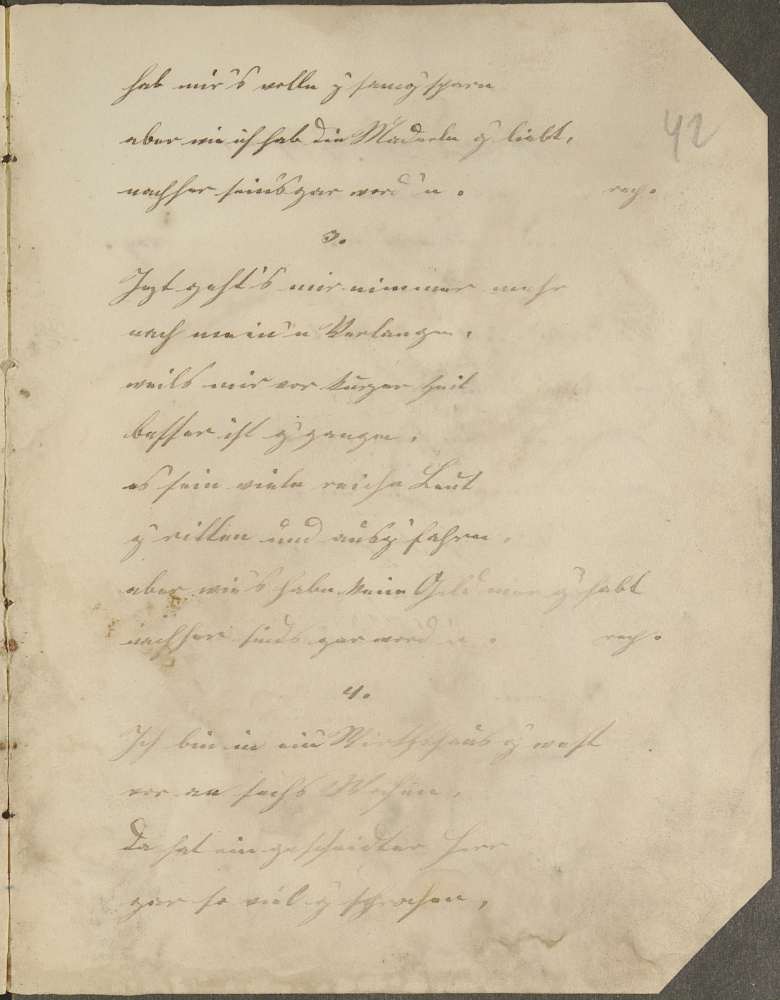 hab mir's wolln z'samg'sparn
42
aber wie ich hab die Maderln g'liebt,
nachher sein's gar word'n.
3.
Jezt geht's mir nimmer mehr
nach mein'n Verlangen,
weils mir vor kurzer Zeit
besser ist g'gangen,
es sein viele reiche Leut
g'ritten und ausg'fahren,
aber wie's haben kein Geld mer g'habt
nachher sind's gar word'n.
4.
Ich bin in ein Wirthshaus g'west
vor an sechs Wochen,
Da hat ein gescheidter Herr
gar so viel g'sprochen,